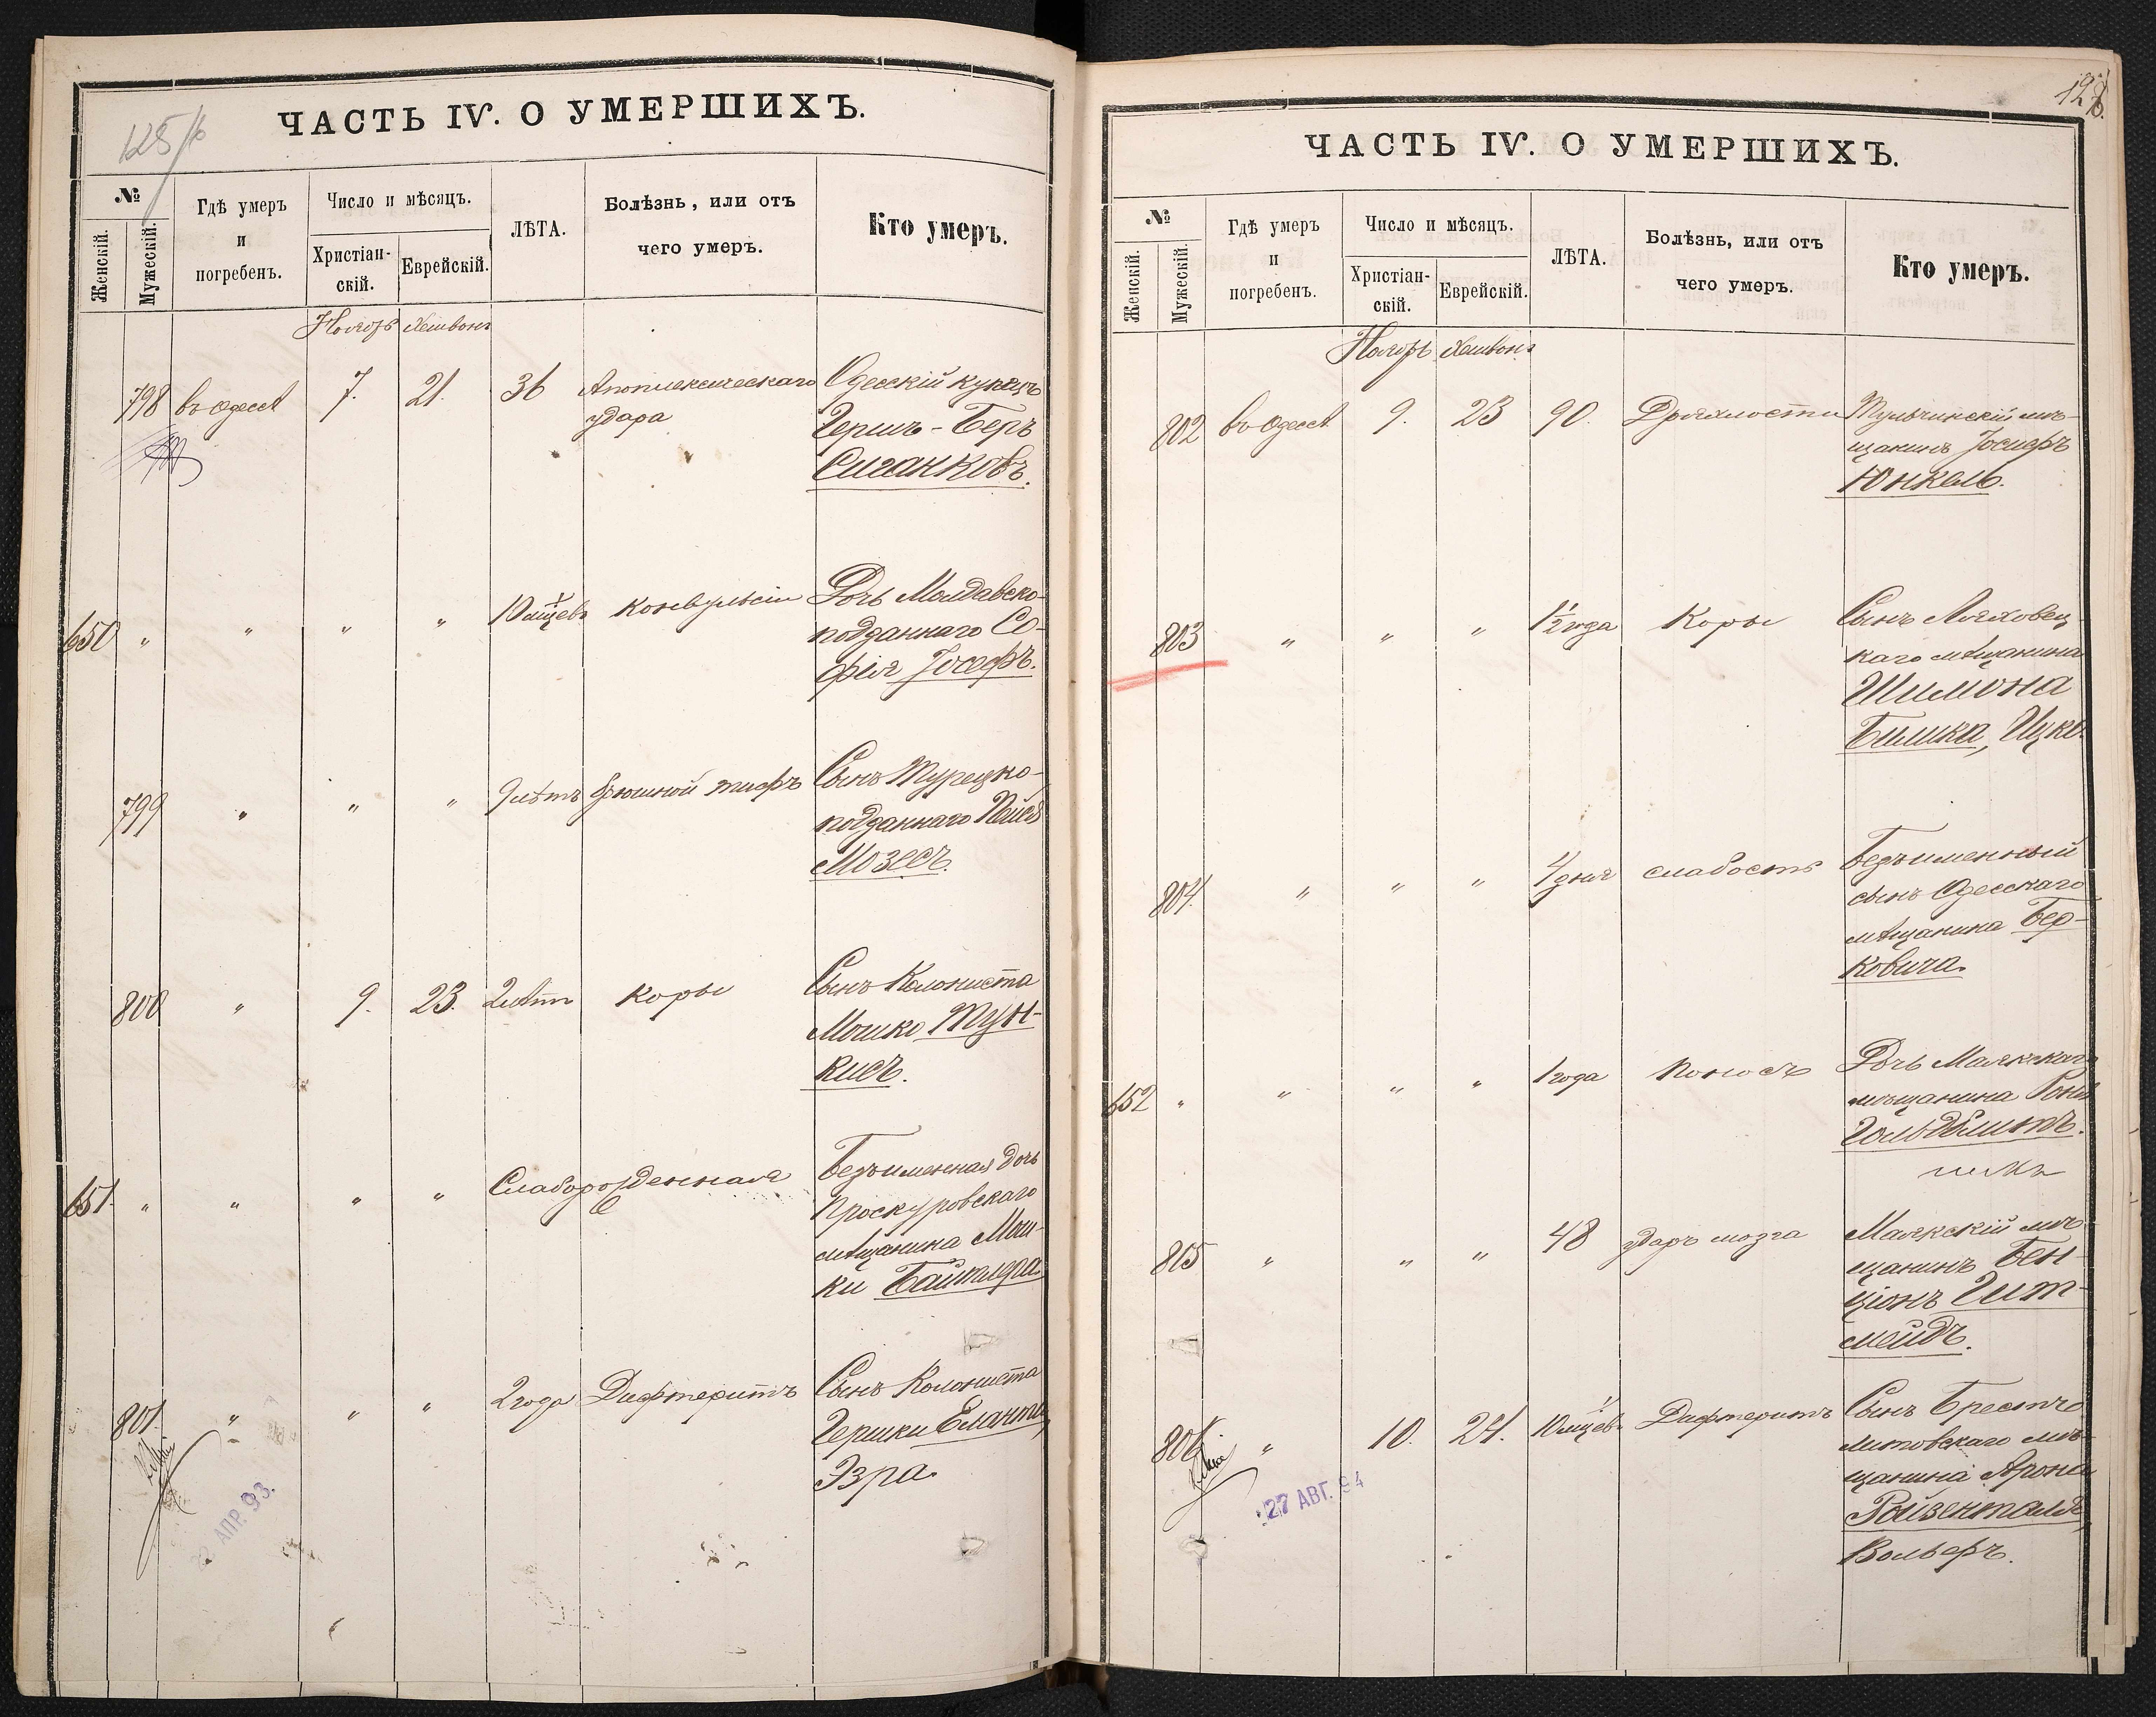 125/б
ЧАСТЬ IV. О УМЕРШИХЪ.
№
Женскій.
Мужескій.
Гдѣ умеръ
и
погребенъ.
Число и мѣсяцъ.
Христіан-
скій.
Еврейскій.
ЛѢТА.
Болѣзнь, или отъ
чего умеръ.
Кто умеръ.
Ноябрь Хешвонъ
798 въ Одессѣ 7. 21. 36 Апоплексическаго Одесскій купецъ
удара Гершъ-Беръ
Сиганковъ.
650 " " " " 10 мѣщевъ Конвульсіи Дочь Молдавско-
подданнаго Со-
фія Іосефъ.
799 " " " 9 лѣтъ Брюшной тифъ Сынъ Турецко-
подданнаго Пайсѣ
Мозесъ.
800 " 9. 23. 2 лѣтъ Коры Сынъ Колониста
Мошко Тун-
кисъ.
651. " " " " Слаборожденная Безъименная дочь
Проскуровскаго
мѣщанина Мош-
ки
801. " " " 2 года Дифтеритъ Сынъ Колониста
Гершки
Эзра.
22 АПР. 93.
ЧАСТЬ IV. О УМЕРШИХЪ.
№
Женскій.
Мужескій.
Гдѣ умеръ
и
погребенъ.
Число и мѣсяцъ.
Христіан-
скій.
Еврейскій.
ЛѢТА.
Болѣзнь, или отъ
чего умеръ.
Кто умеръ.
Ноябрь Хешвонъ
802 въ Одессѣ 9. 23 90. Дряхлости Тульчинскій мѣ-
щанинъ Іосифъ
Юнкель.
803 " " " 1½ года Коры Сынъ Ляховец
каго мѣщанина
Шимона
Билика, Ицко.
804. " " " 4 дня слабость Безъименный
сынъ Одесскаго
мѣщанина Бер-
ковича.
652 " " " " 1 года Поносъ Дочь Маякскаго
мѣщанина
805 " " " 48 ударъ мозга Маякскій мѣ-
щанинъ Бен-
ціонъ Гит-
мейдъ.
806 " 10. 24. 10 мѣщевъ Дифтеритъ Сынъ Брестъ
литовскаго мѣ-
щанина Арона
Ройзенталя,
Вольфъ.
27 АВГ. 94